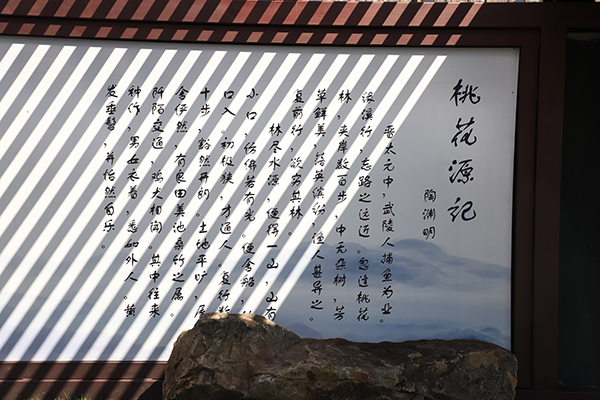 桃花源记
陶渊明
晋太元中，武陵人捕鱼为业。
缘溪行，忘路之远近。忽逢桃花
林，夹岸数百步，中无杂树，芳
草鲜美，落英缤纷，渔人甚异之。
复前行，欲穷其林。
林尽水源，便得一山，山有
小口，仿佛若有光。便舍船，
口入。初极狭，才通人。复行
十步，豁然开朗。土地平旷，屋
舍俨然，有良田美池桑竹之属。
阡陌交通，鸡犬相闻。其中往来
种作，男女衣着，悉如外人。黄
发垂髫，并怡然自乐。